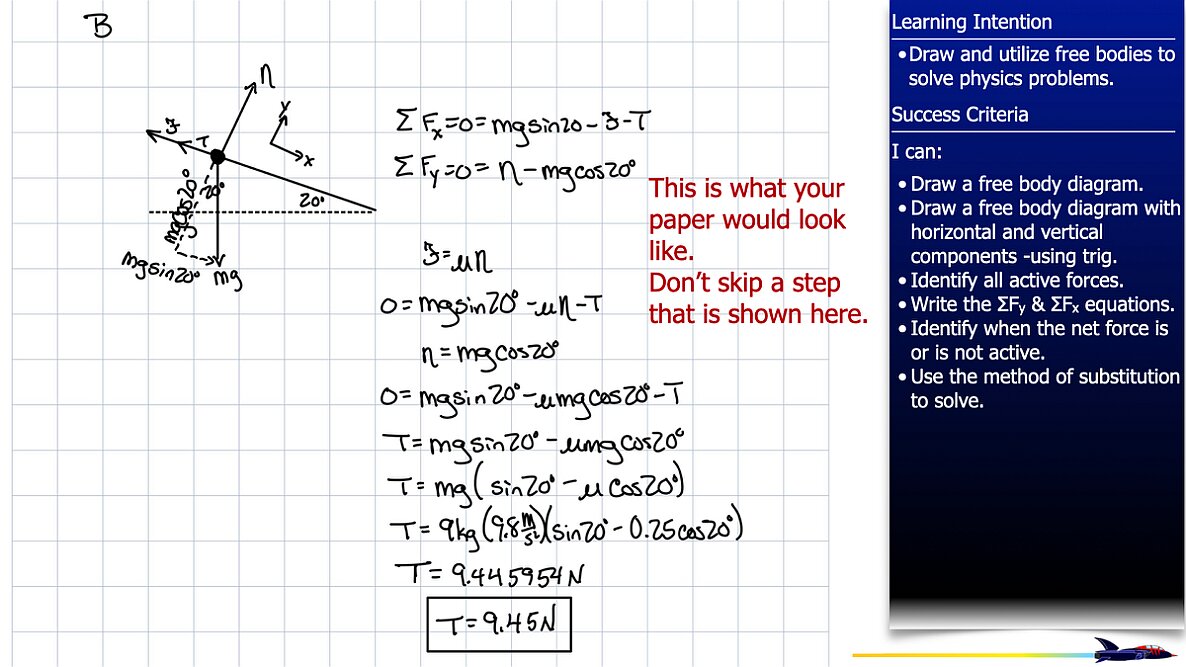 B
n
y
x
ℱ
T
20°
20°
mgcos20°
mgsin20°
mg
ΣFx=0=mgsin20-ℱ-T
ΣFy=0= n-mgcos20°
ℱ=μn
0=mgsin20°-μn-T
n=mgcos20°
0=mgsin20°-μmgcos20°-T
T=mgsin20°-μmgcos20°
T=mg(sin20°-μcos20°)
T=9kg(9.8m/s²)(sin20°-0.25cos20°)
T=9.445954N
T=9.45N
This is what your
paper would look
like.
Don't skip a step
that is shown here.
Learning Intention
•Draw and utilize free bodies to
solve physics problems.
Success Criteria
I can:
•Draw a free body diagram.
•Draw a free body diagram with
horizontal and vertical
components -using trig.
•Identify all active forces.
•Write the ΣFy & ΣFx equations.
•Identify when the net force is
or is not active.
•Use the method of substitution
to solve.